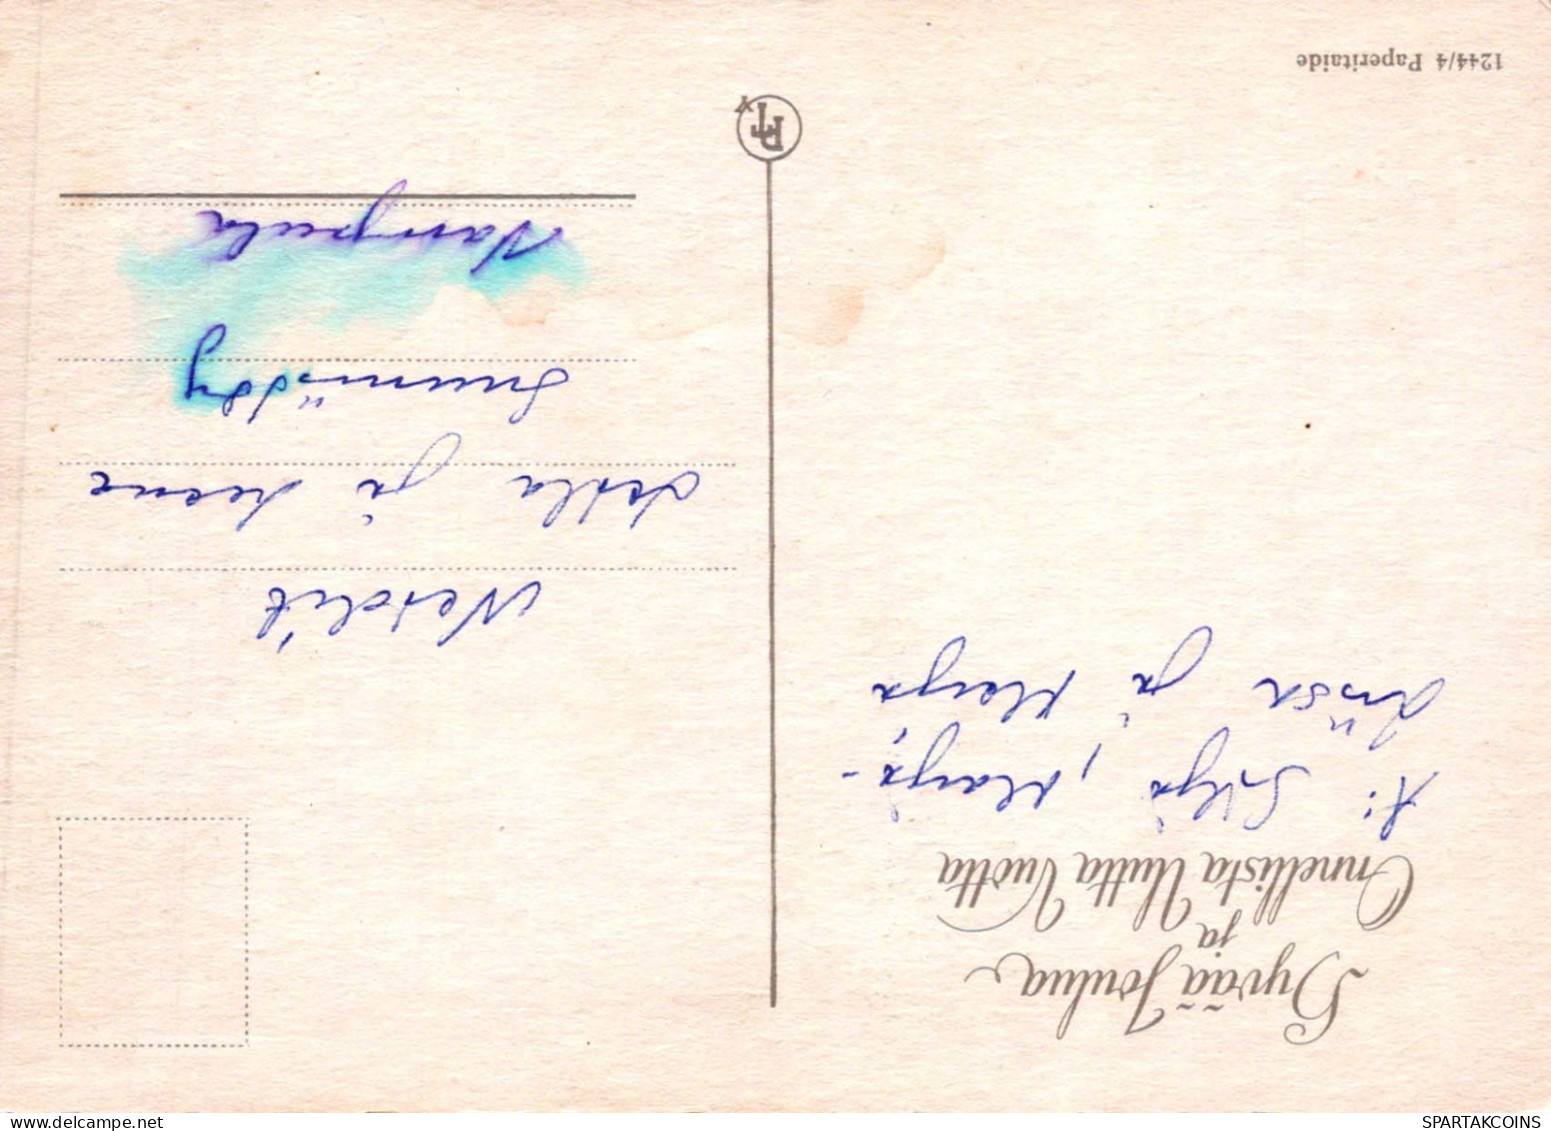 Hyvää Joulua
ja
Onnellista Uutta Vuotta
t: Silja, Marja-
Liisa ja Marja
Neidit
ja Leena
Vampula
1244/4 Paperitaide
PT
delcampe.net
SPARTAKCOINS